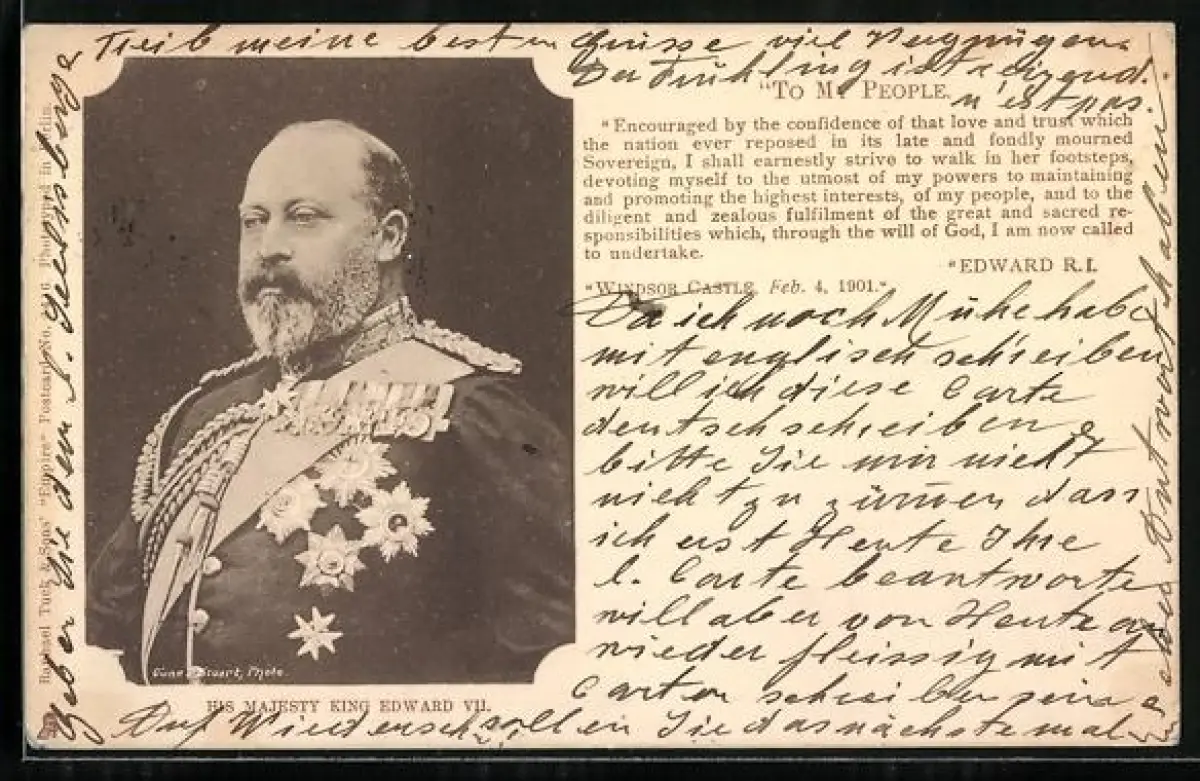 Treib meine besten Grüsse viel Vergnügen.
Der Frühling ist reizend.
n'est pas.
"TO MY PEOPLE.
"Encouraged by the confidence of that love and trust which
the nation ever reposed in its late and fondly mourned
Sovereign, I shall earnestly strive to walk in her footsteps,
devoting myself to the utmost of my powers to maintaining
and promoting the highest interests, of my people, and to the
diligent and zealous fulfilment of the great and sacred re-
sponsibilities which, through the will of God, I am now called
to undertake.
"EDWARD R.I.
"WINDSOR CASTLE, Feb. 4, 1901."
Da ich noch Mühe habe
mit englisch schreiben
will ich diese Carte
deutsch schreiben &
bitte Sie mir nicht
nicht zu zürnen dass
ich erst Heute Ihre
l. Carte beantworte
will aber von Heute an
wieder fleissig mit
Carten schreiben
Sie das nächste mal
Antwort haben
Auf Wiedersehn
sollen
geben Sie dem
Raphael Tuck & Sons' "Empire" Postcard No. Phototyped in Berlin.
Stuart, Photo.
HIS MAJESTY KING EDWARD VII.